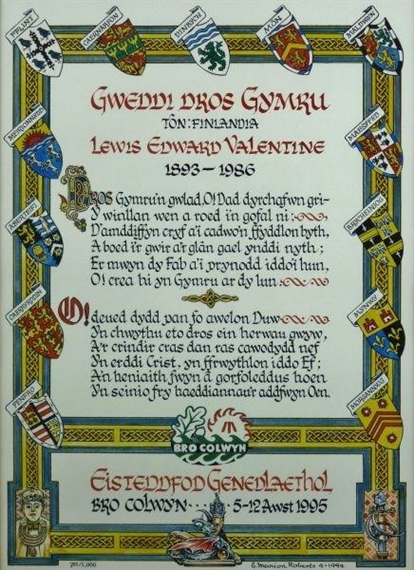 FFLINT
CAERNARFON
DINBYCH
MÔN
MALDWYN
GWEDDI DROS GYMRU
TÔN: FINLANDIA
LEWIS EDWARD VALENTINE
1893-1986
MAESYFED
ABERTEIFI
BRYCHEINIOG
MYNWY
PENFRO
MORGANNWG
DROS Gymru'n gwlad, O! Dad dyrchafwn gri-
Y winllan wen a roed i'n gofal ni:
D'amddiffyn cryf a'i cadwo'n ffyddlon byth,
A boed i'r gwir a'r glân gael ynddi nyth;
Er mwyn dy Fab a'i prynodd iddo'i hun,
O! crea hi yn Gymru ar dy lun.
O! deued dydd pan fo awelon Duw
Yn chwythu eto dros ein herwau gwyw,
A'r crindir cras dan ras cawodydd nef
Yn erddi Crist, yn ffrwythlon iddo Ef;
A'n heniaith fwyn â gorfoleddus hoen
Yn seinio fry haeddiannau'r addfwyn Oen.
BRO COLWYN
EISTEDDFOD GENEDLAETHOL
BRO COLWYN... 5-12 Awst 1995
E. Meirion Roberts 4.1994